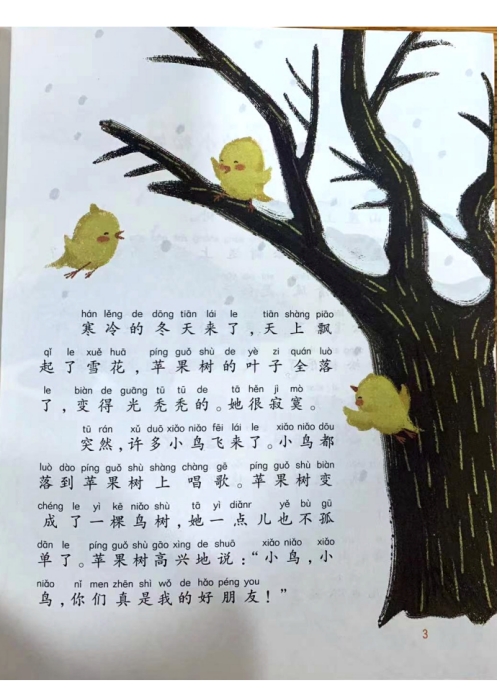 hán lěng de dōng tiān lái le tiān shàng piāo
寒冷的冬天来了,天上飘
qǐ le xuě huā píng guǒ shù de yè zi quán luò
起了雪花,苹果树的叶子全落
le biàn de guāng tū tū de tā hěn jì mò
了,变得光秃秃的。她很寂寞。
tū rán xǔ duō xiǎo niǎo fēi lái le xiǎo niǎo dōu
突然,许多小鸟飞来了。小鸟都
luò dào píng guǒ shù shàng chàng gē píng guǒ shù biàn
落到苹果树上唱歌。苹果树变
chéng le yì kē niǎo shù tā yì diǎnr yě bù gū
成了一棵鸟树,她一点儿也不孤
dān le píng guǒ shù gāo xìng de shuō xiǎo niǎo xiǎo
单了。苹果树高兴地说:“小鸟,小
niǎo nǐ men zhēn shì wǒ de hǎo péng you
鸟,你们真是我的好朋友!”
3